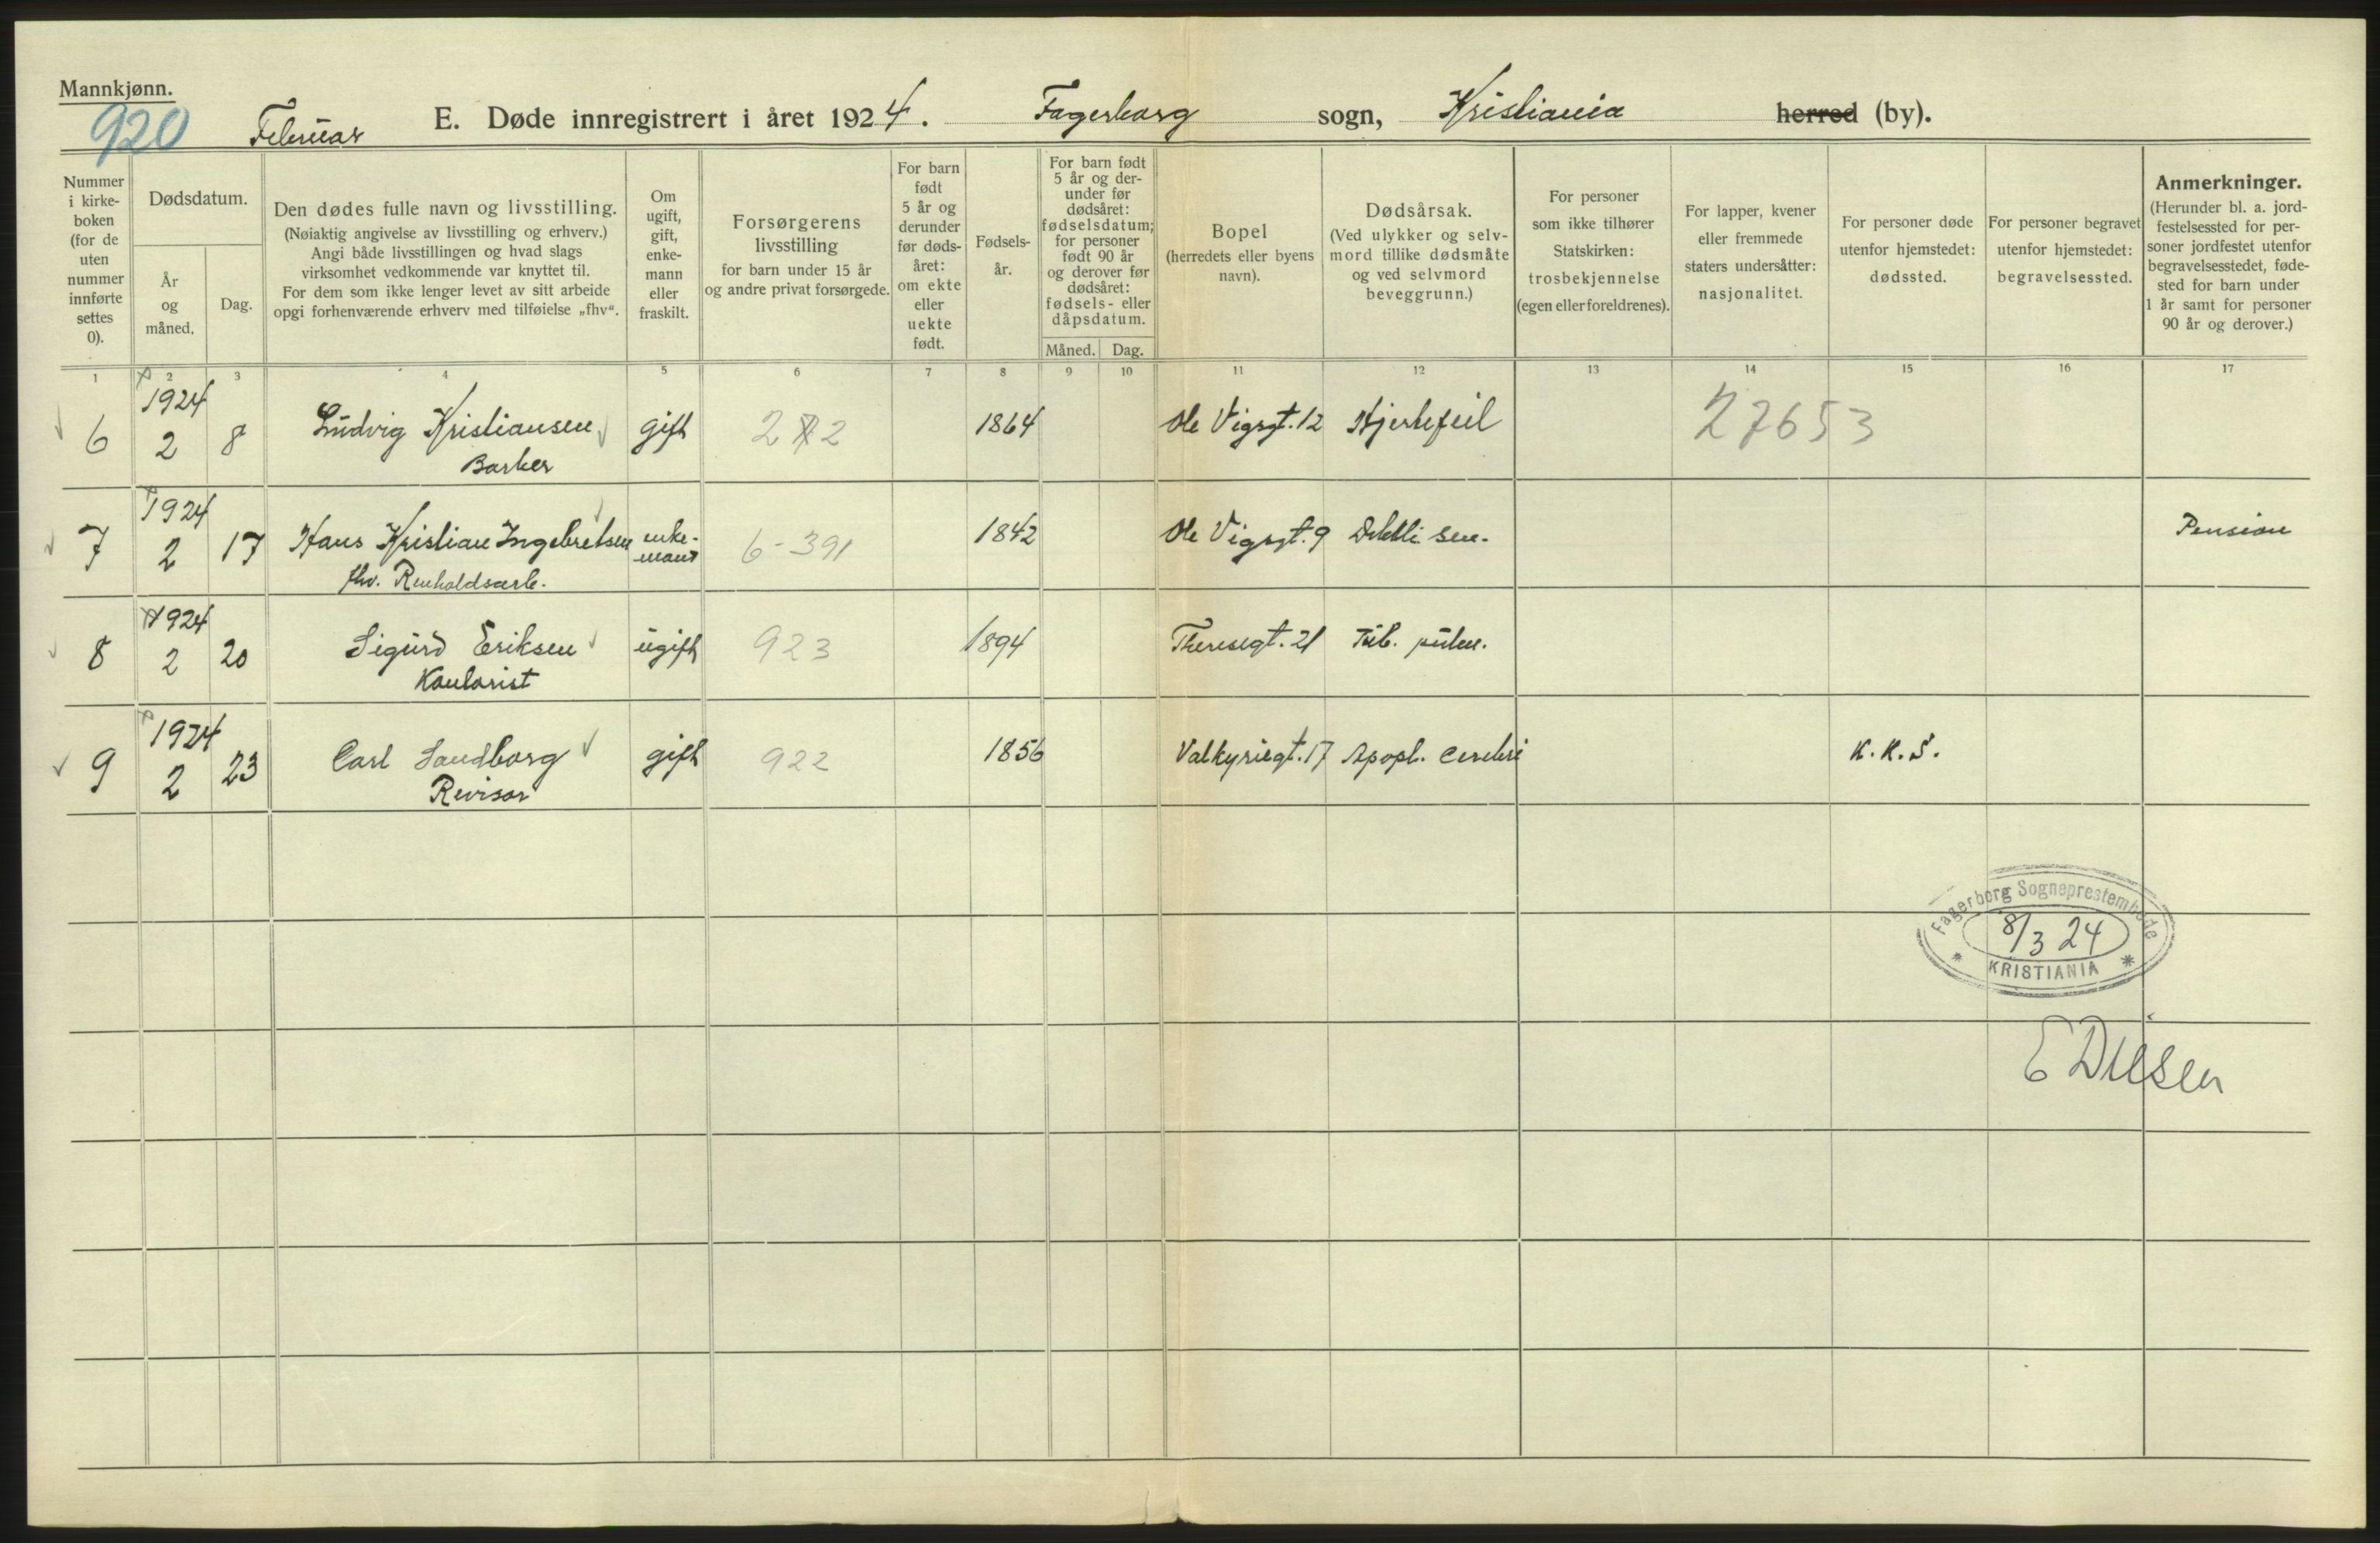 Mannkjønn.
920
Februar E. Døde innregistrert i året 1924. Fagerborg sogn, Kristiania herred (by).
Nummer i kirke-boken (for de uten nummer innførte settes 0).
Dødsdatum.
År og måned.
Dag.
Den dødes fulle navn og livsstilling.
(Nøiaktig angivelse av livsstilling og erhverv.)
Angi både livsstillingen og hvad slags
virksomhet vedkommende var knyttet til.
For dem som ikke lenger levet av sitt arbeide
opgi forhenværende erhverv med tilføielse „fhv“.
Om ugift, gift, enke-mann eller fraskilt.
Forsørgerens livsstilling
for barn under 15 år
og andre privat forsørgede.
For barn født 5 år og derunder før døds-året: om ekte eller uekte født.
Fødsels-år.
For barn født 5 år og der-under før dødsåret: fødselsdatum; for personer født 90 år og derover før dødsåret: fødsels- eller dåpsdatum.
Måned. Dag.
Bopel
(herredets eller byens navn).
Dødsårsak.
(Ved ulykker og selv-mord tillike dødsmåte og ved selvmord beveggrunn.)
For personer som ikke tilhører Statskirken: trosbekjennelse (egen eller foreldrenes).
For lapper, kvener eller fremmede staters undersåtter: nasjonalitet.
For personer døde utenfor hjemstedet: dødssted.
For personer begravet utenfor hjemstedet: begravelsessted.
Anmerkninger.
(Herunder bl. a. jord-festelsessted for per-soner jordfestet utenfor begravelsesstedet, føde-sted for barn under 1 år samt for personer 90 år og derover.)
1 2 3 4 5 6 7 8 9 10 11 12 13 14 15 16 17
6 1924 2 8 Ludvig Kristiansen gift 1864 Ole Vigsgt. 12 Hjertefeil 27653
Barber
7 1924 2 17 Hans Kristian Ingebretsen enke-mann 6-391 1842 Ole Vigsgt. 9 Debili sen. Pension
fhv. Renholdsarb.
8 1924 2 20 Sigurd Eriksen ugift 923 1894 Theresegt. 21 Tub. pulm.
Kontorist
9 1924 2 23 Carl Sandborg gift 922 1856 Valkyriegt. 17 Apopl. cerebri K.K.S.
Revisor
Fagerborg Sogneprestembede
8/3 24
KRISTIANIA
E Diesen